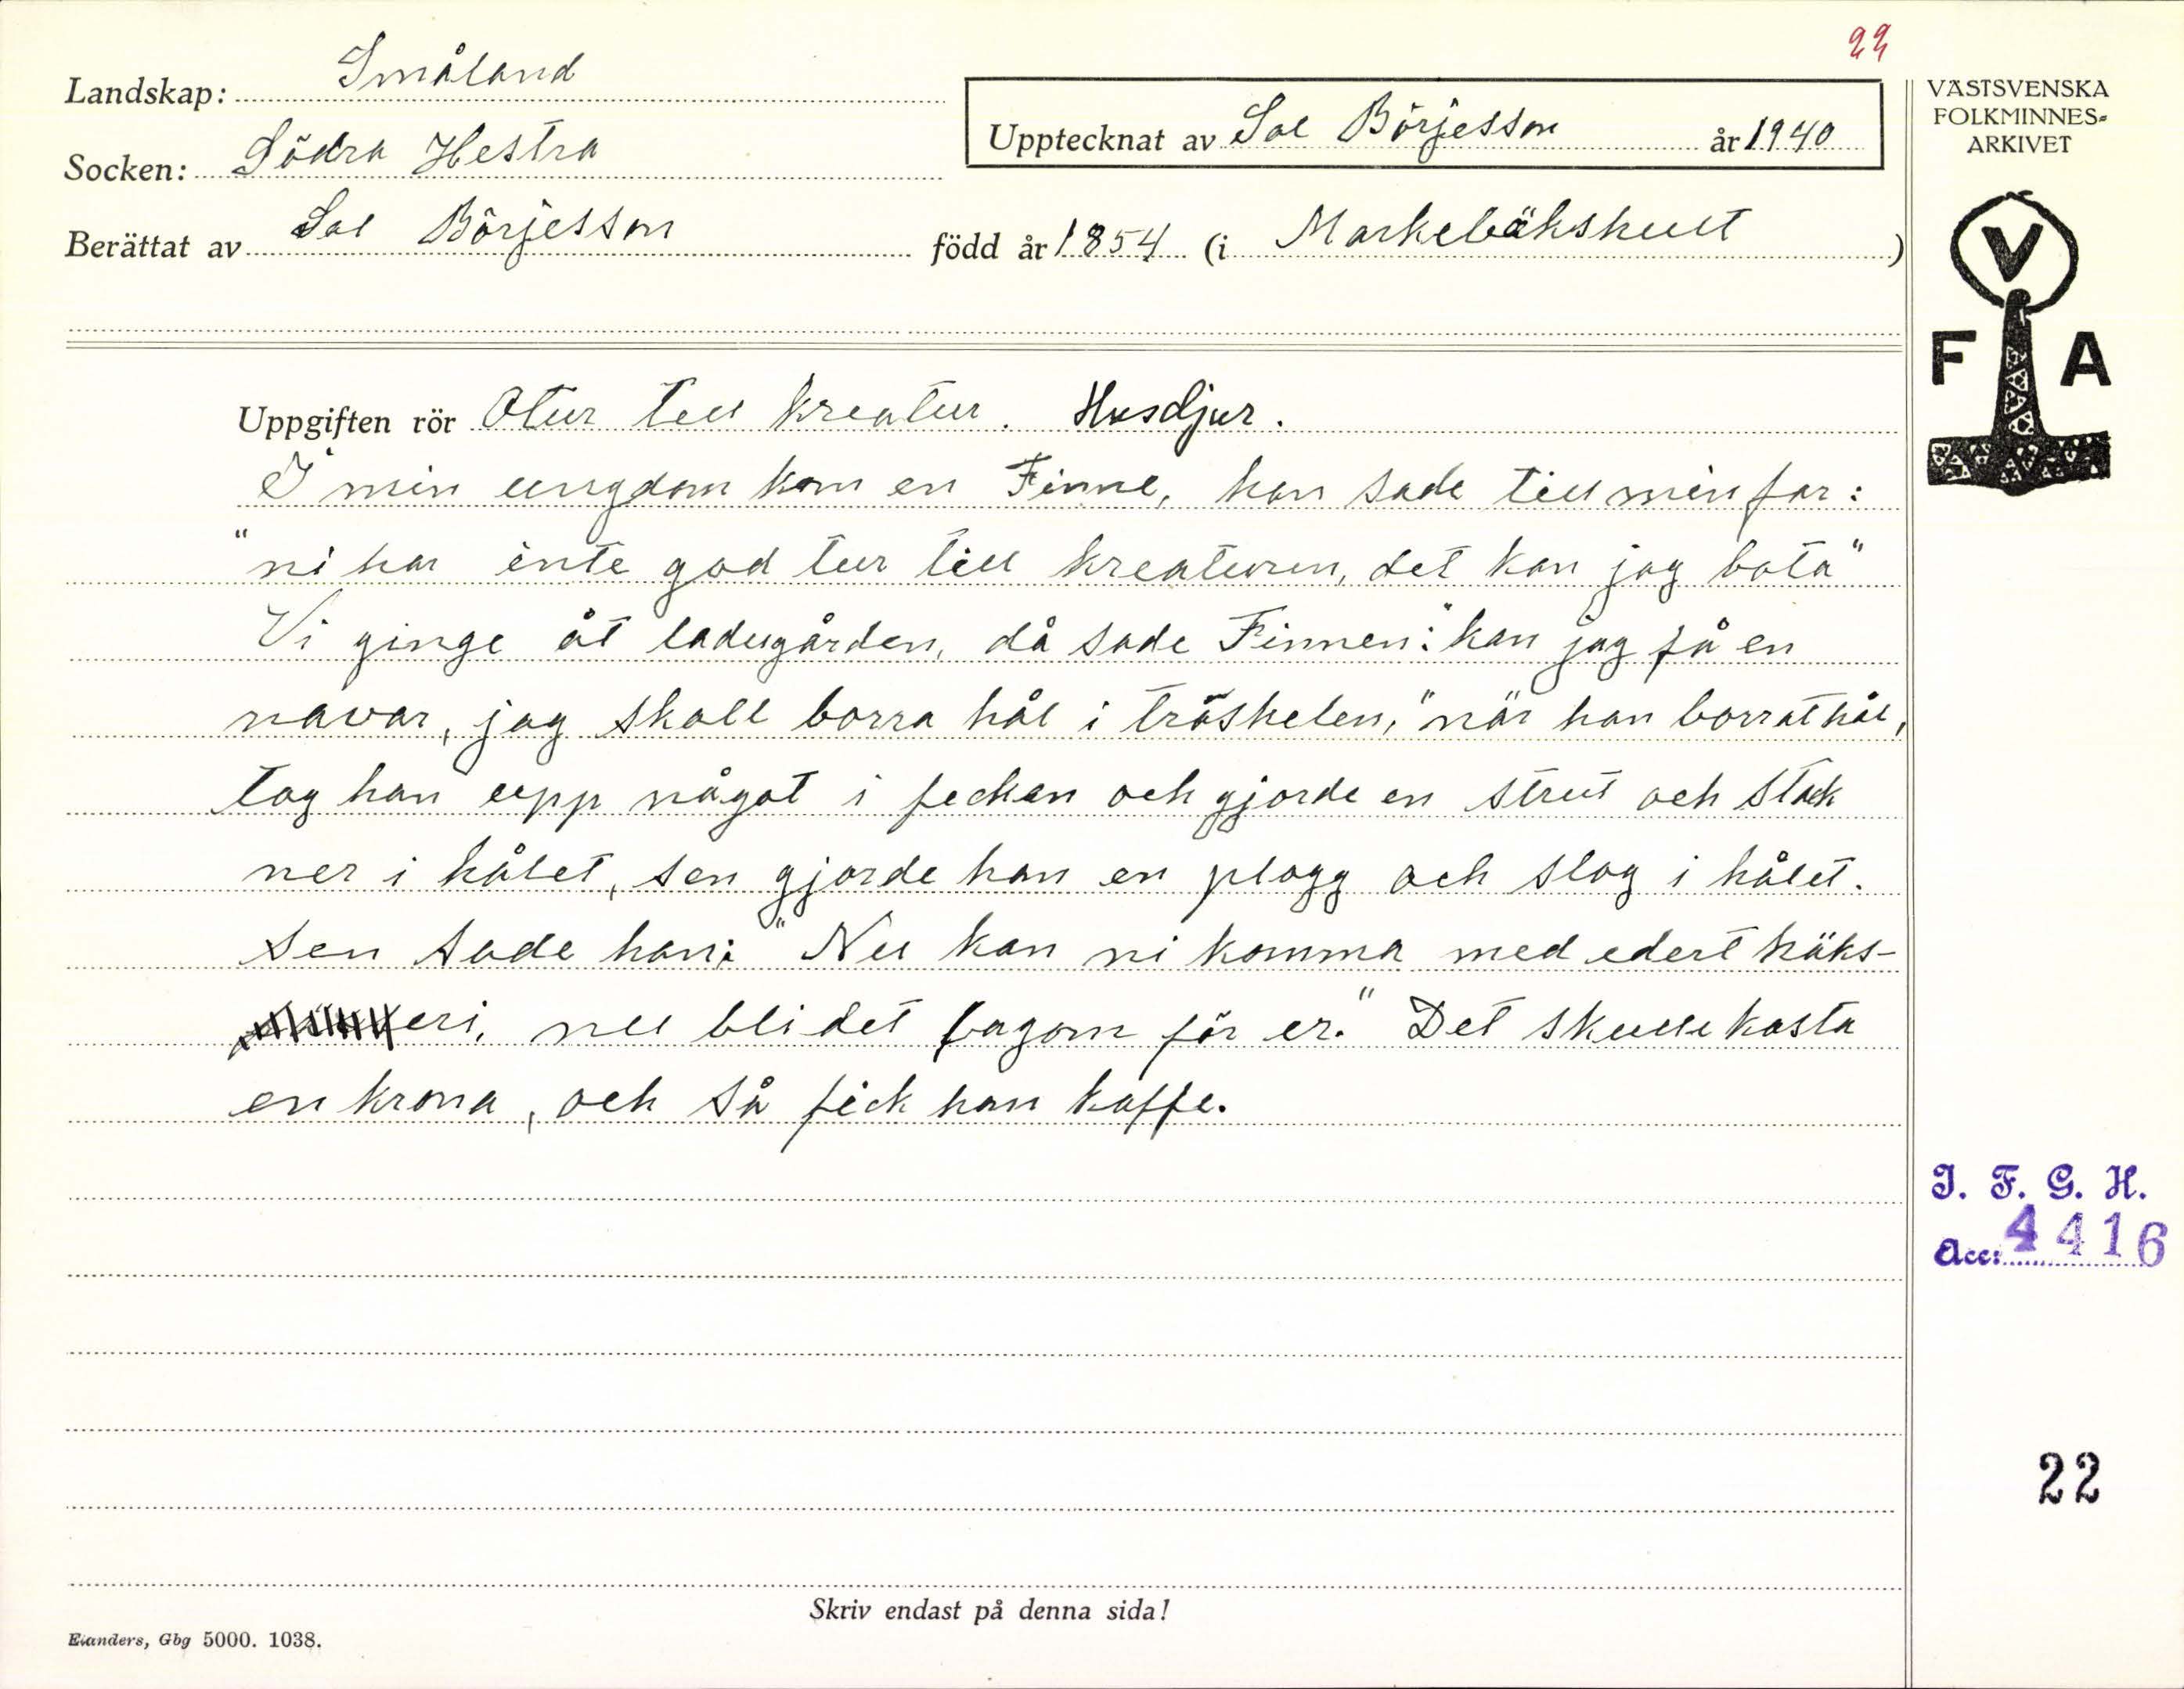 22
Landskap: Småland
Socken: Södra Hestra
Upptecknat av Sal Börjesson år 1940
Berättat av Sal Börjesson född år 1854 (i Markebäkshult)
Uppgiften rör Otur till kreatur. Husdjur.
I min ungdom kom en Finne, han sade till min far:
"ni har inte god tur till kreaturen, det kan jag bota"
Vi ginge åt ladugården, då sade Finnen: "kan jag få en
navar, jag skall borra hål i tröskelen," när han borrat hål,
tog han upp något i feckan och gjorde en strut och stack
ner i hålet, sen gjorde han en plogg och slog i hålet.
Sen sade han: "Nu kan ni komma med edert häks-
eri, nu bli det lagom för er." Det skulle kosta
en krona, och så fick han kaffe.
Skriv endast på denna sida!
Elanders, Gbg 5000. 1038.
VÄSTSVENSKA
FOLKMINNES-
ARKIVET
V
F A
I. F. G. H.
Acc: 4416
22